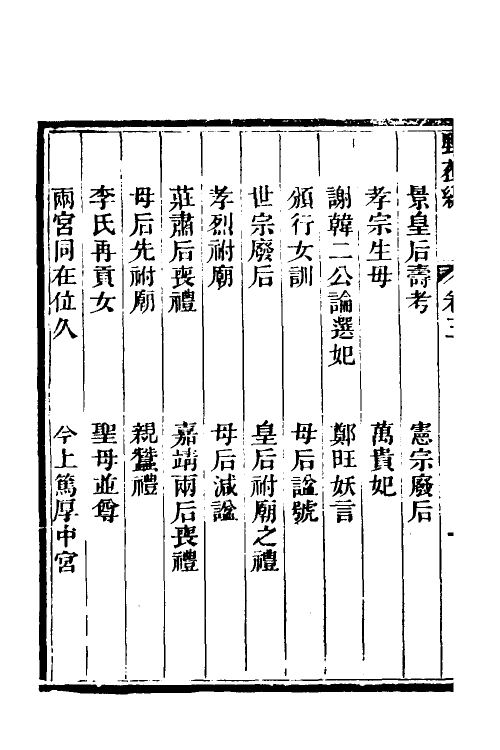 景皇后壽考　憲宗廢后
孝宗生母　萬貴妃
謝韓二公論選妃　鄭旺妖言
頒行女訓　母后諡號
世宗廢后　皇后祔廟之禮
孝烈祔廟　母后減諡
莊肅后喪禮　嘉靖兩后喪禮
母后先祔廟　親蠶禮
李氏再貢女　聖母並尊
兩宮同在位久　今上篤厚中宮